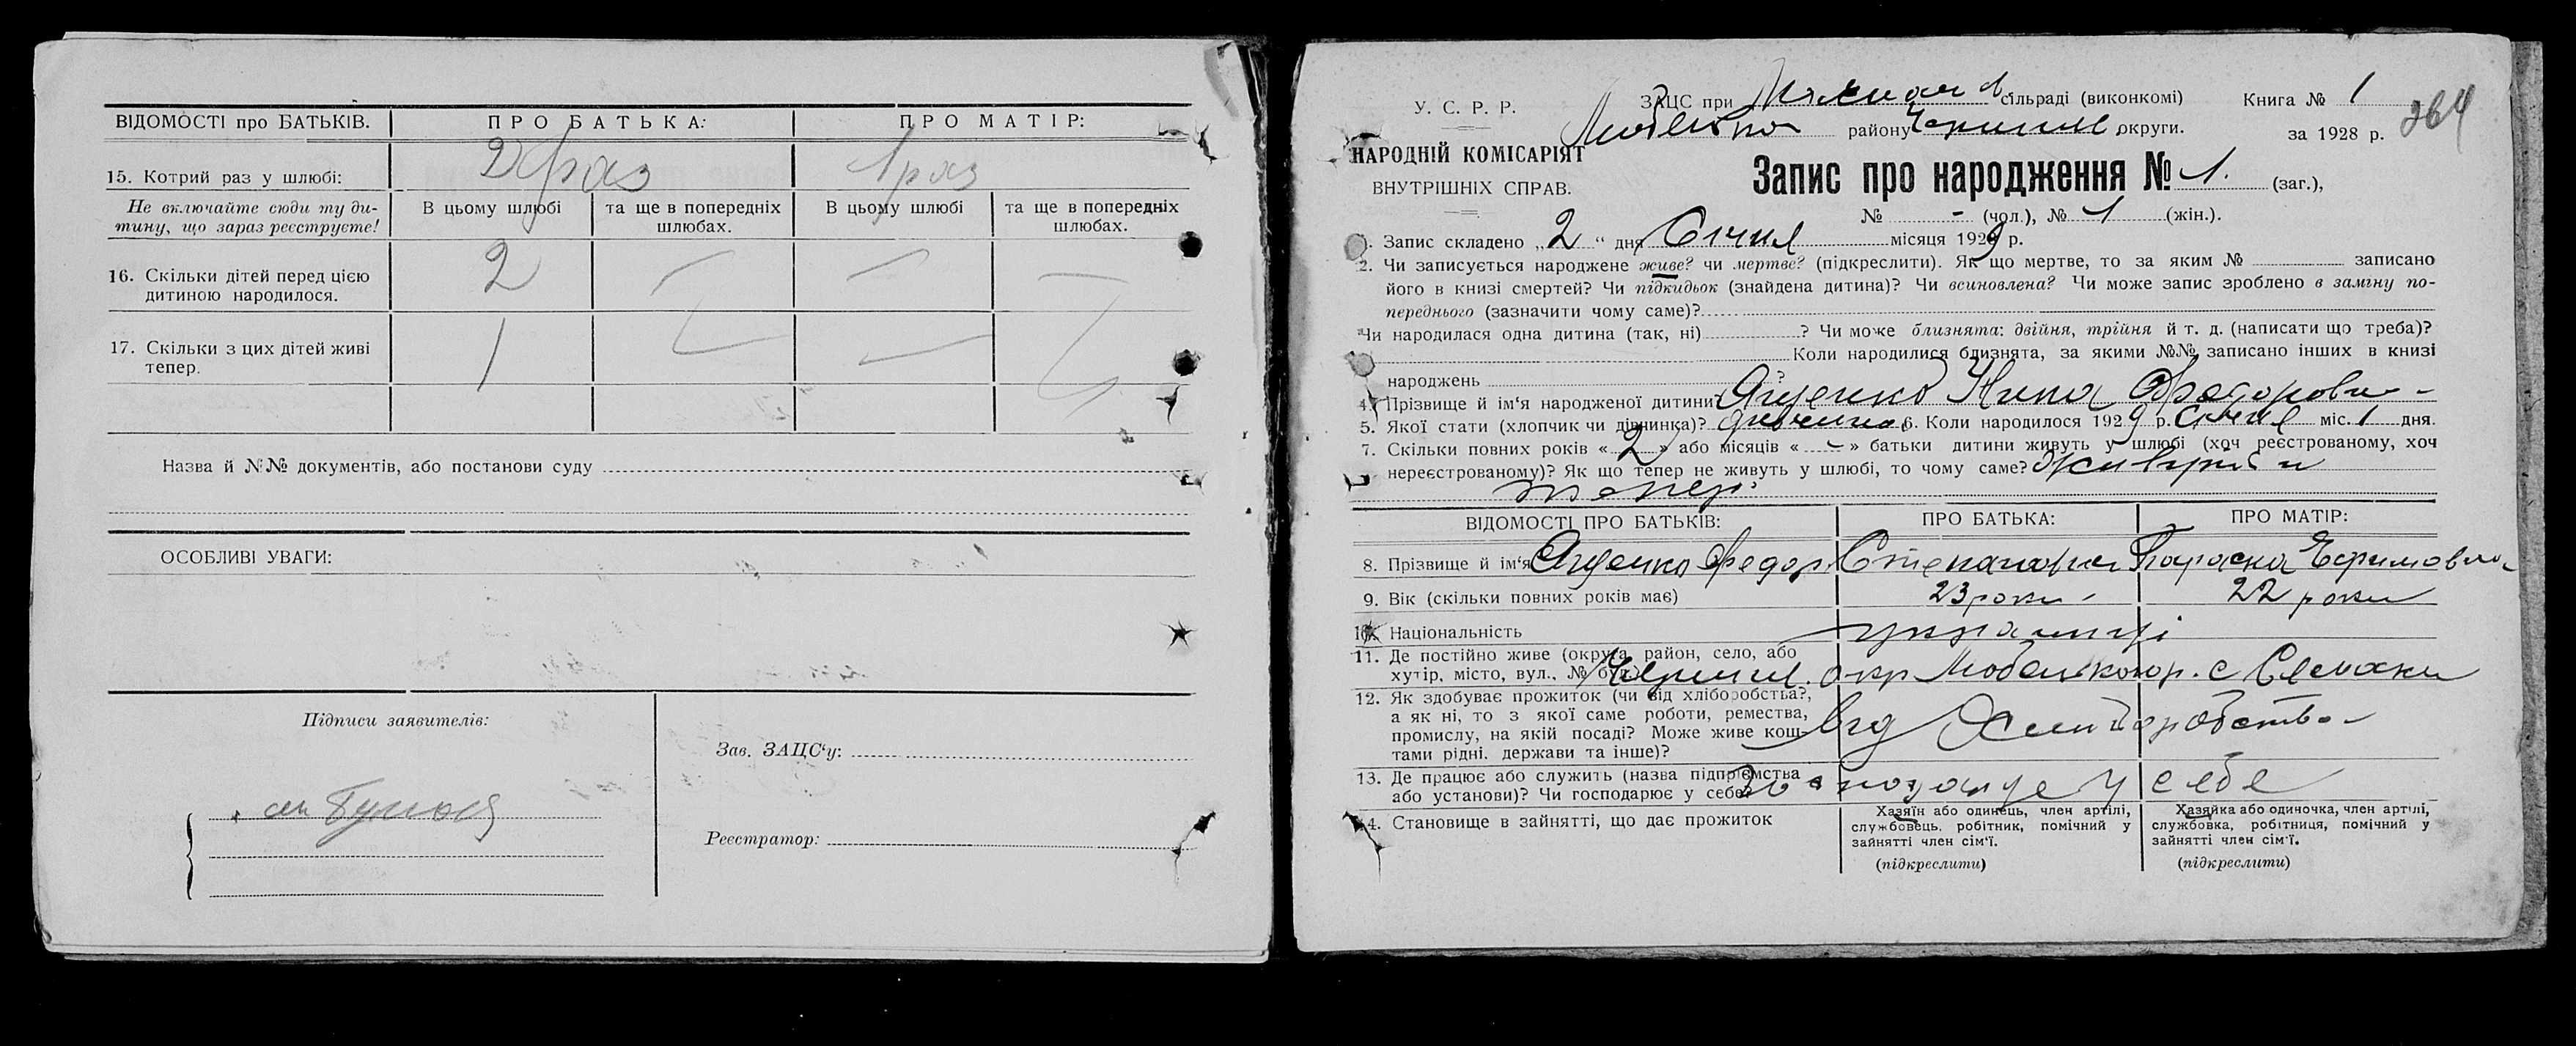 ВІДОМОСТІ про БАТЬКІВ. ПРО БАТЬКА: ПРО МАТІР:
15. Котрий раз у шлюбі: 2 раз 1 раз
Не включайте сюди ту ди- В цьому шлюбі та ще в попередніх В цьому шлюбі та ще в попередніх
тину, що зараз реєструєте! шлюбах. шлюбах.
16. Скільки дітей перед цією 2 — — —
дитиною народилося.
17. Скільки з цих дітей живі 1 — — —
тепер.
Назва й №№ документів, або постанови суду
ОСОБЛИВІ УВАГИ:
Підписи заявителів:
Зав. ЗАЦС'у:
Реєстратор:
У. С. Р. Р.
НАРОДНІЙ КОМІСАРІЯТ
ВНУТРІШНІХ СПРАВ.
ЗАЦС при сільраді (виконкомі) Книга № 1
району Черниг округи. за 1928 р. 264
Запис про народження № 1. (заг.),
№ - (чол.), № 1 (жін.).
1. Запис складено „2“ дня Січня місяця 1929 р.
2. Чи записується народжене живе? чи мертве? (підкреслити). Як що мертве, то за яким № записано
його в книзі смертей? Чи підкидьок (знайдена дитина)? Чи всиновлена? Чи може запис зроблено в заміну по-
переднього (зазначити чому саме)?
Чи народилася одна дитина (так, ні) ? Чи може близнята: двійня, трійня й т. д. (написати що треба)?
Коли народилися близнята, за якими №№ записано інших в книзі
народжень ?
4. Прізвище й ім'я народженої дитини Ященко Нина Федоровн-
5. Якої стати (хлопчик чи дівчинка)? дивчинка 6. Коли народилося 1929 р. Січня міс. 1 дня.
7. Скільки повних років «2» або місяців « - » батьки дитини живуть у шлюбі (хоч реєстрованому, хоч
нереєстрованому)? Як що тепер не живуть у шлюбі, то чому саме? живуть и
тепер
ВІДОМОСТІ ПРО БАТЬКІВ: ПРО БАТЬКА: ПРО МАТІР:
8. Прізвище й ім'я Ященко Федор Степанович Параска Ефимовна
9. Вік (скільки повних років має) 23 роки 22 роки
10. Національність украинці
11. Де постійно живе (округа, район, село, або
хутір, місто, вул., № буд.) Черниг. окр Любецького р. с
12. Як здобуває прожиток (чи від хліборобства?,
а як ні, то з якої саме роботи, ремества,
промислу, на якій посаді? Може живе кош- від Хліборобства
тами рідні, держави та інше)?
13. Де працює або служить (назва підприємства
або установи)? Чи господарює у себе? у себе
14. Становище в зайнятті, що дає прожиток Хазяїн або одинець, член артілі, Хазяйка або одиночка, член артілі,
службовець, робітник, помічний у службовка, робітниця, помічний у
зайнятті член сім'ї. зайнятті член сім'ї.
(підкреслити) (підкреслити)